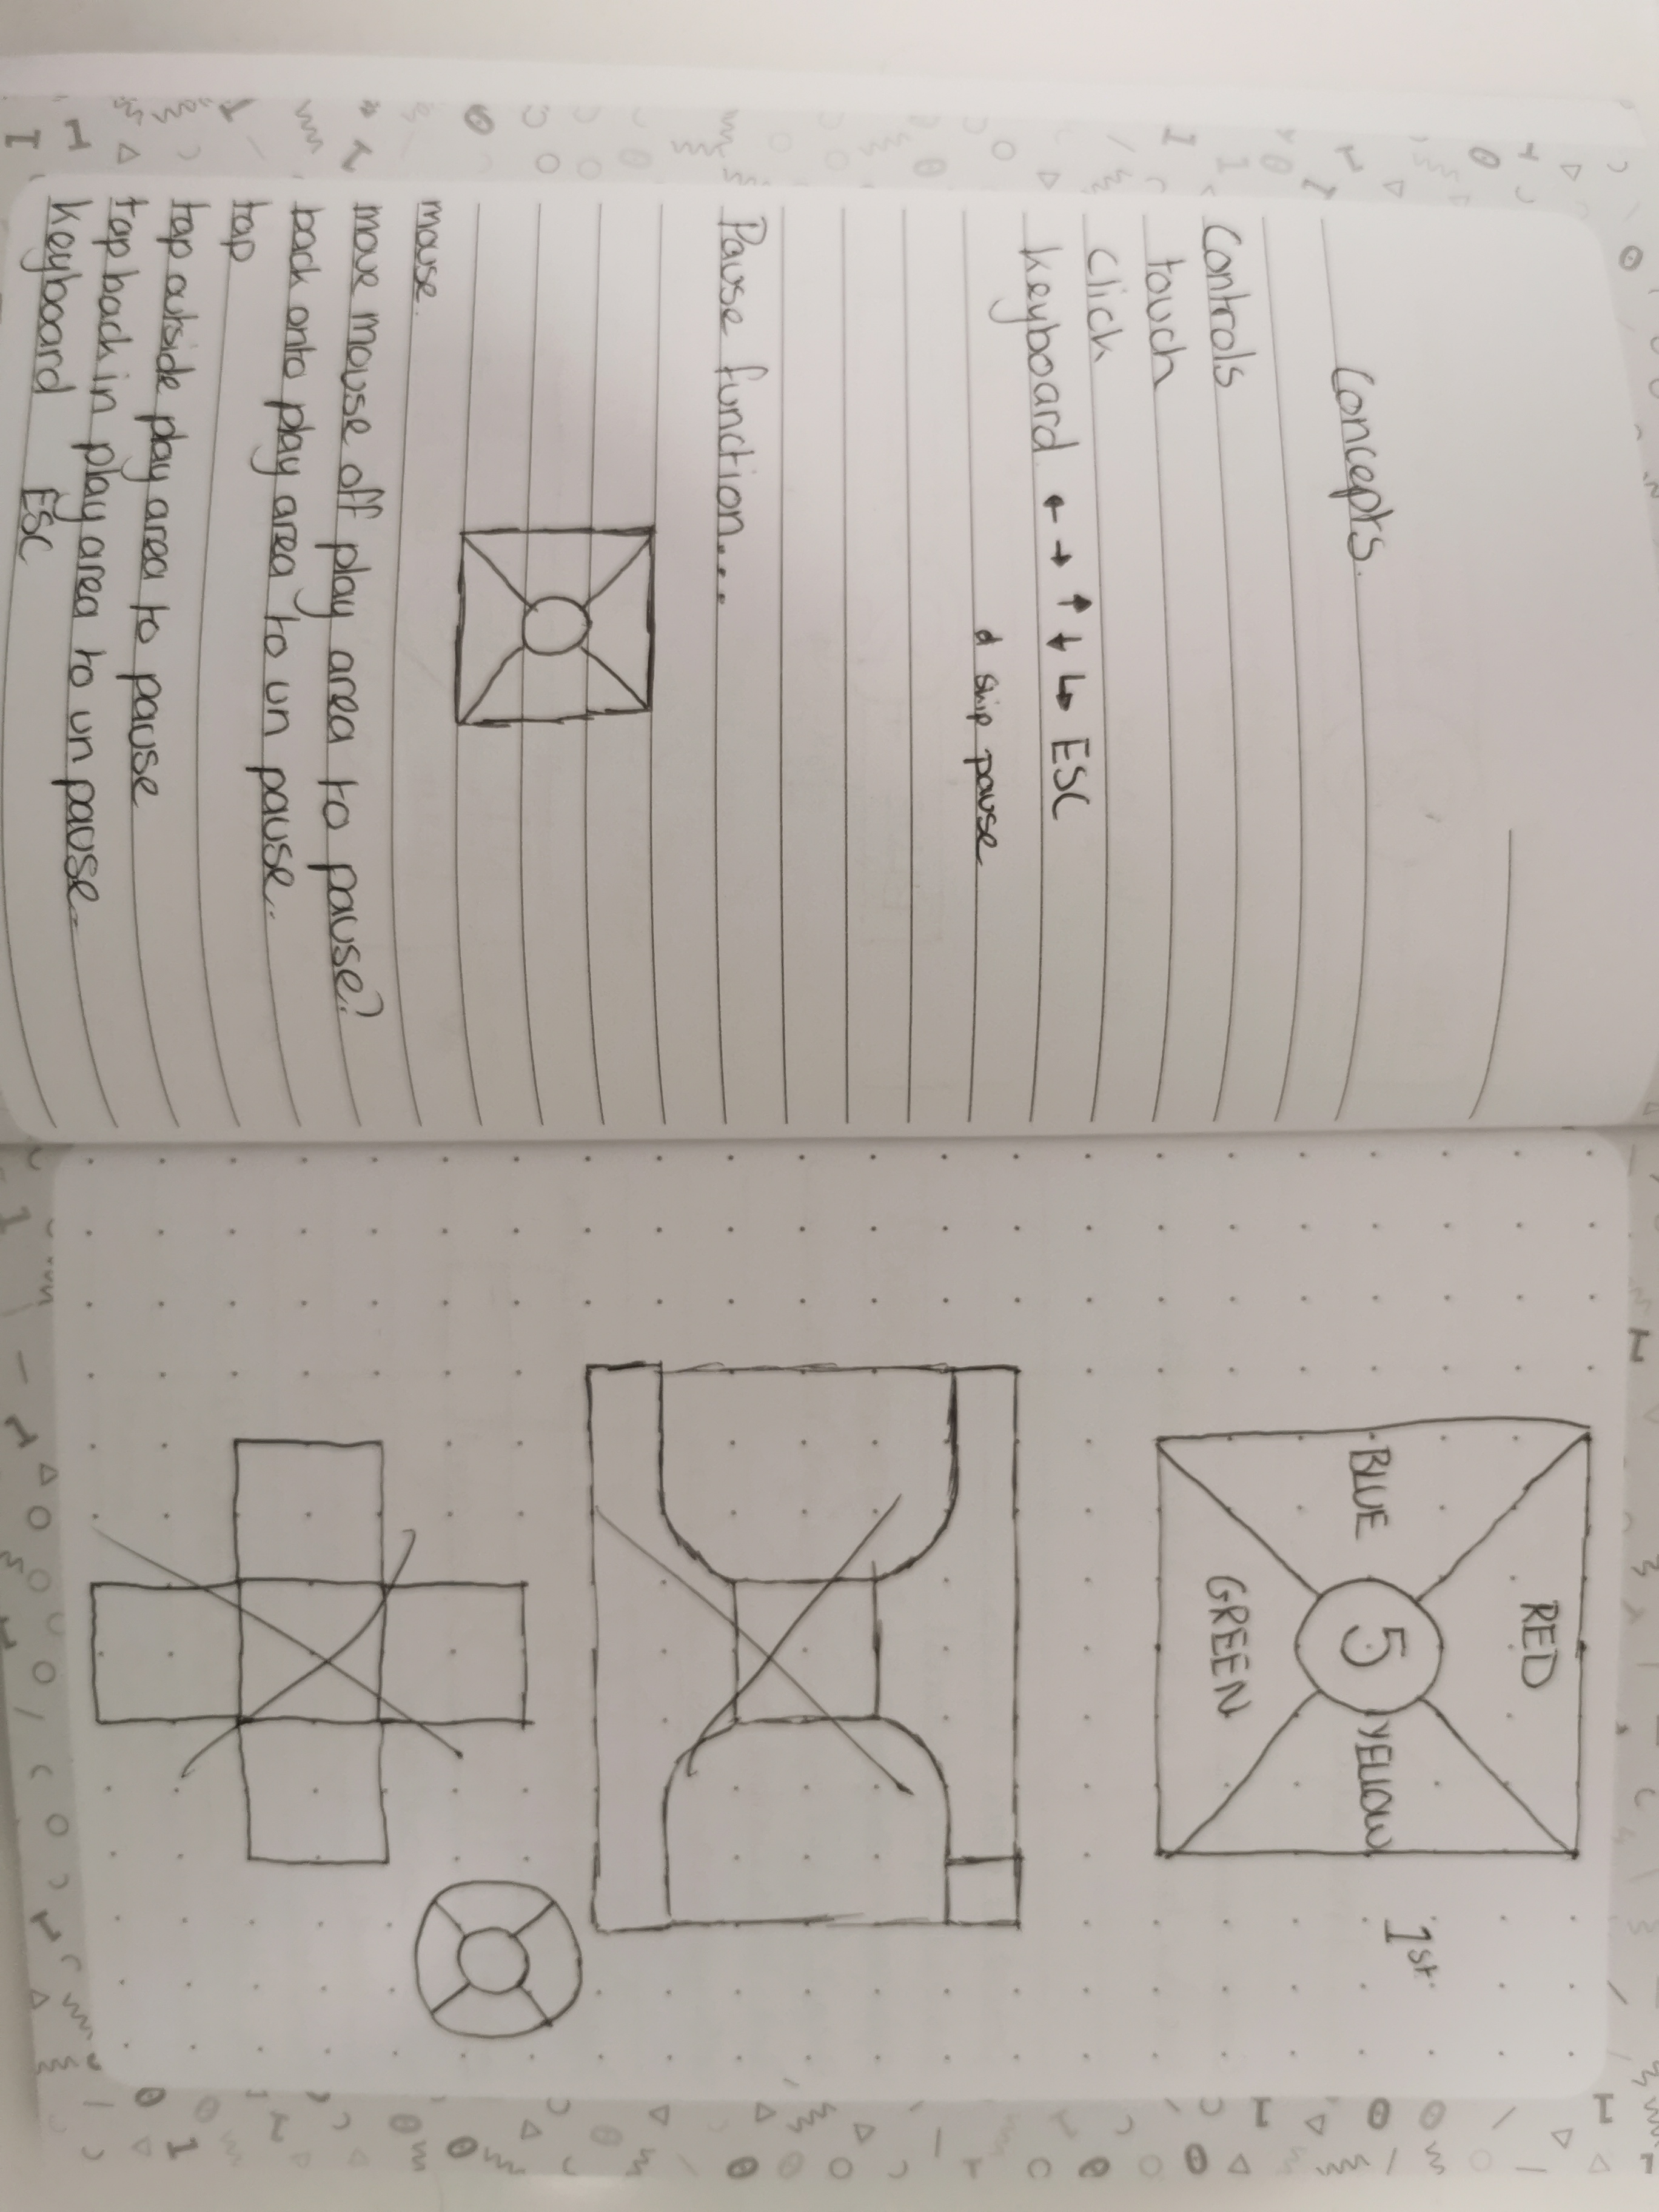 Concepts.
Controls
touch
click
keyboard ← → ↑ ↓ ↳ ESC
skip pause
Pause function....
mouse.
move mouse off play area to pause?
back onto play area to un pause.
tap
tap outside play area to pause
tap back in play area to un pause.
keyboard ESC
RED
BLUE 5 YELLOW
GREEN
1st.